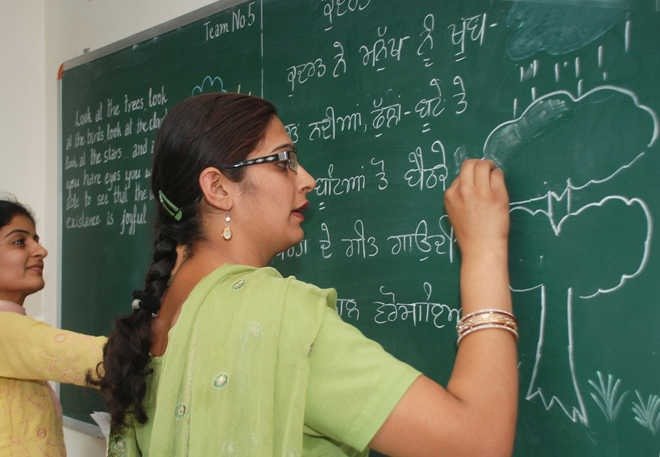 Team No 5
Look at the trees look
at the birds look at the
look at the stars .. and
you have eyes you
able to see that the
existence is joyful
ਕੁਦਰਤ
ਕੁਦਰਤ ਨੇ ਮਨੁੱਖ ਨੂੰ ਖੂਬ-
ਨਦੀਆਂ, ਫੁੱਲਾਂ-ਬੂਟੇ ਤੇ
ਤੇ
ਦੇ ਗੀਤ ਗਾਉਂਦੀ